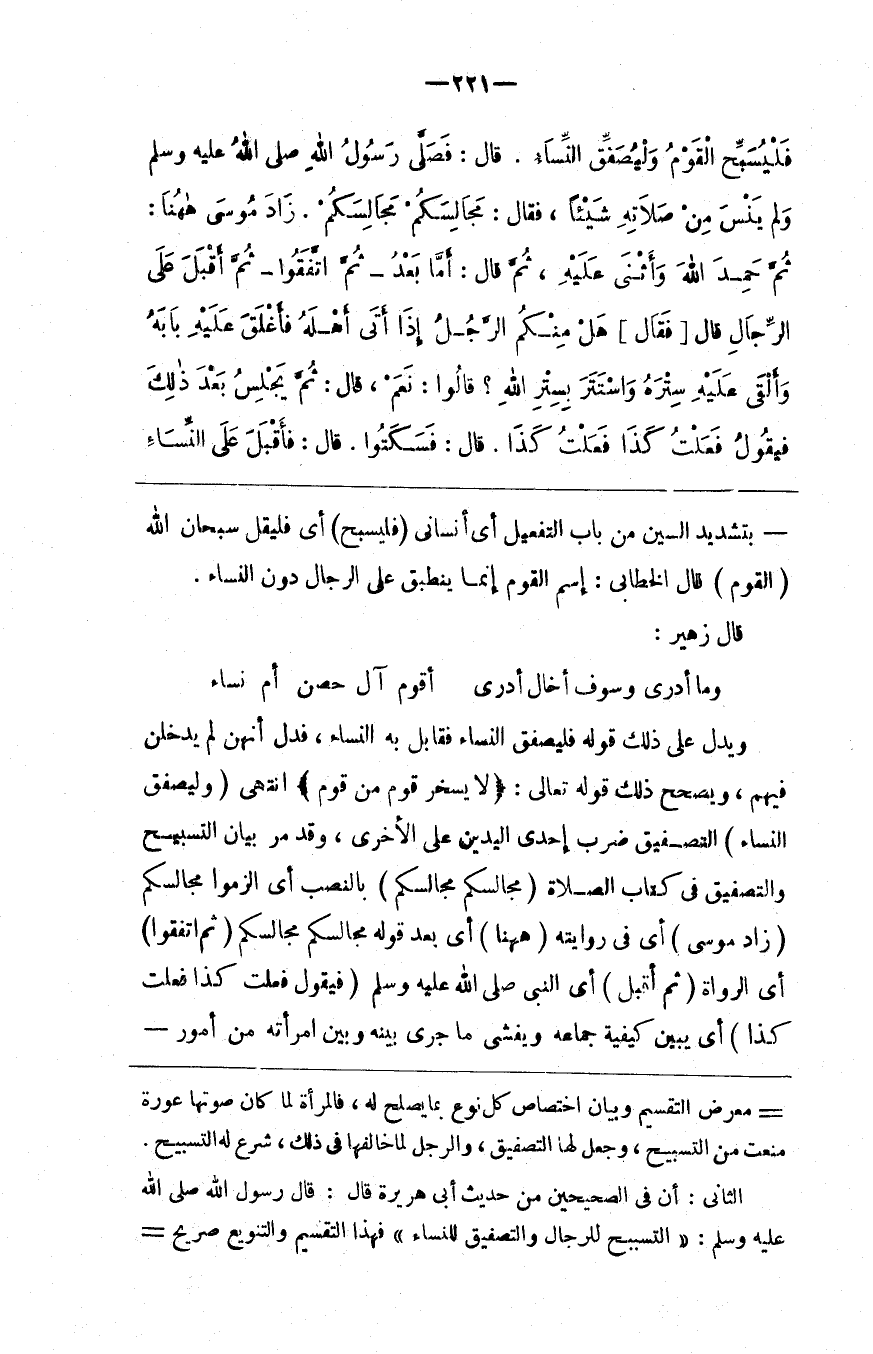 —٢٢١—
فَلْيُسَبِّحِ الْقَوْمُ وَلْيُصَفِّقِ النِّسَاءُ . قال : فَصَلَّى رَسُولُ اللهِ صلى اللهُ عليه وسلم
وَلم يَنْسَ مِنْ صَلَاتِهِ شَيْئاً ، فقال : مَجَالِسَكُمْ مَجَالِسَكُمْ . زَادَ مُوسَى هٰهُنَا :
ثُمَّ حَمِدَ اللهَ وَأَثْنَى عَلَيْهِ ، ثُمَّ قال : أَمَّا بَعْدُ ـ ثُمَّ اتَّفَقُوا ـ ثُمَّ أَقْبَلَ عَلَى
الرِّجَالِ قال [ فَقَال ] هَلْ مِنْكُم الرَّجُلُ إِذَا أَتَى أَهْلَهُ فأَغْلَقَ عَلَيْهِ بَابَهُ
وَأَلْقَى عَلَيْهِ سِتْرَهُ وَاسْتَتَرَ بِسِتْرِ اللهِ ؟ قالُوا : نَعَمْ ، قال : ثُمَّ يَجْلِسُ بَعْدَ ذٰلِكَ
فيقُولُ فَعَلْتُ كَذَا فَعَلْتُ كَذَا . قال : فَسَكَتُوا . قال : فأَقْبَلَ عَلَى النِّسَاءِ
— بتشديد السين من باب التفعيل أى أنسانى (فليسبح) أى فليقل سبحان الله
( القوم ) قال الخطابى : إسم القوم إنما ينطبق على الرجال دون النساء .
قال زهير :
وما أدرى وسوف أخال أدرى أقوم آل حصن أم نساء
ويدل على ذلك قوله فليصفق النساء فقابل به النساء ، فدل أنهن لم يدخلن
فيهم ، ويصحح ذلك قوله تعالى : ﴿ لا يسخر قوم من قوم ﴾ انتهى ( وليصفق
النساء ) التصفيق ضرب إحدى اليدين على الأخرى ، وقد مر بيان التسبيح
والتصفيق فى كتاب الصلاة ( مجالسكم مجالسكم ) بالنصب أى الزموا مجالسكم
( زاد موسى ) أى فى روايته ( ههنا ) أى بعد قوله مجالسكم مجالسكم ( ثم اتفقوا)
أى الرواة ( ثم أقبل ) أى النبى صلى الله عليه وسلم ( فيقول فعلت كذا فعلت
كذا ) أى يبين كيفية جماعه ويفشى ما جرى بينه وبين امرأته من أمور —
== معرض التقسيم وبيان اختصاص كل نوع بما يصلح له ، فالمرأة لما كان صوتها عورة
منعت من التسبيح ، وجعل لها التصفيق ، والرجل لما خالفها فى ذلك ، شرع له التسبيح .
الثانى : أن فى الصحيحين من حديث أبى هريرة قال : قال رسول الله صلى الله
عليه وسلم : « التسبيح للرجال والتصفيق للنساء » فهذا التقسيم والتنويع صريح ==